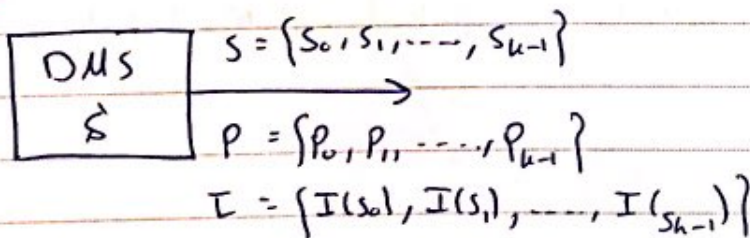 DMS
S
S = {S₀, S₁, ----, Sₖ₋₁}
P = {P₀, P₁, ----, Pₖ₋₁}
I = {I(S₀), I(S₁), ----, I(Sₖ₋₁)}